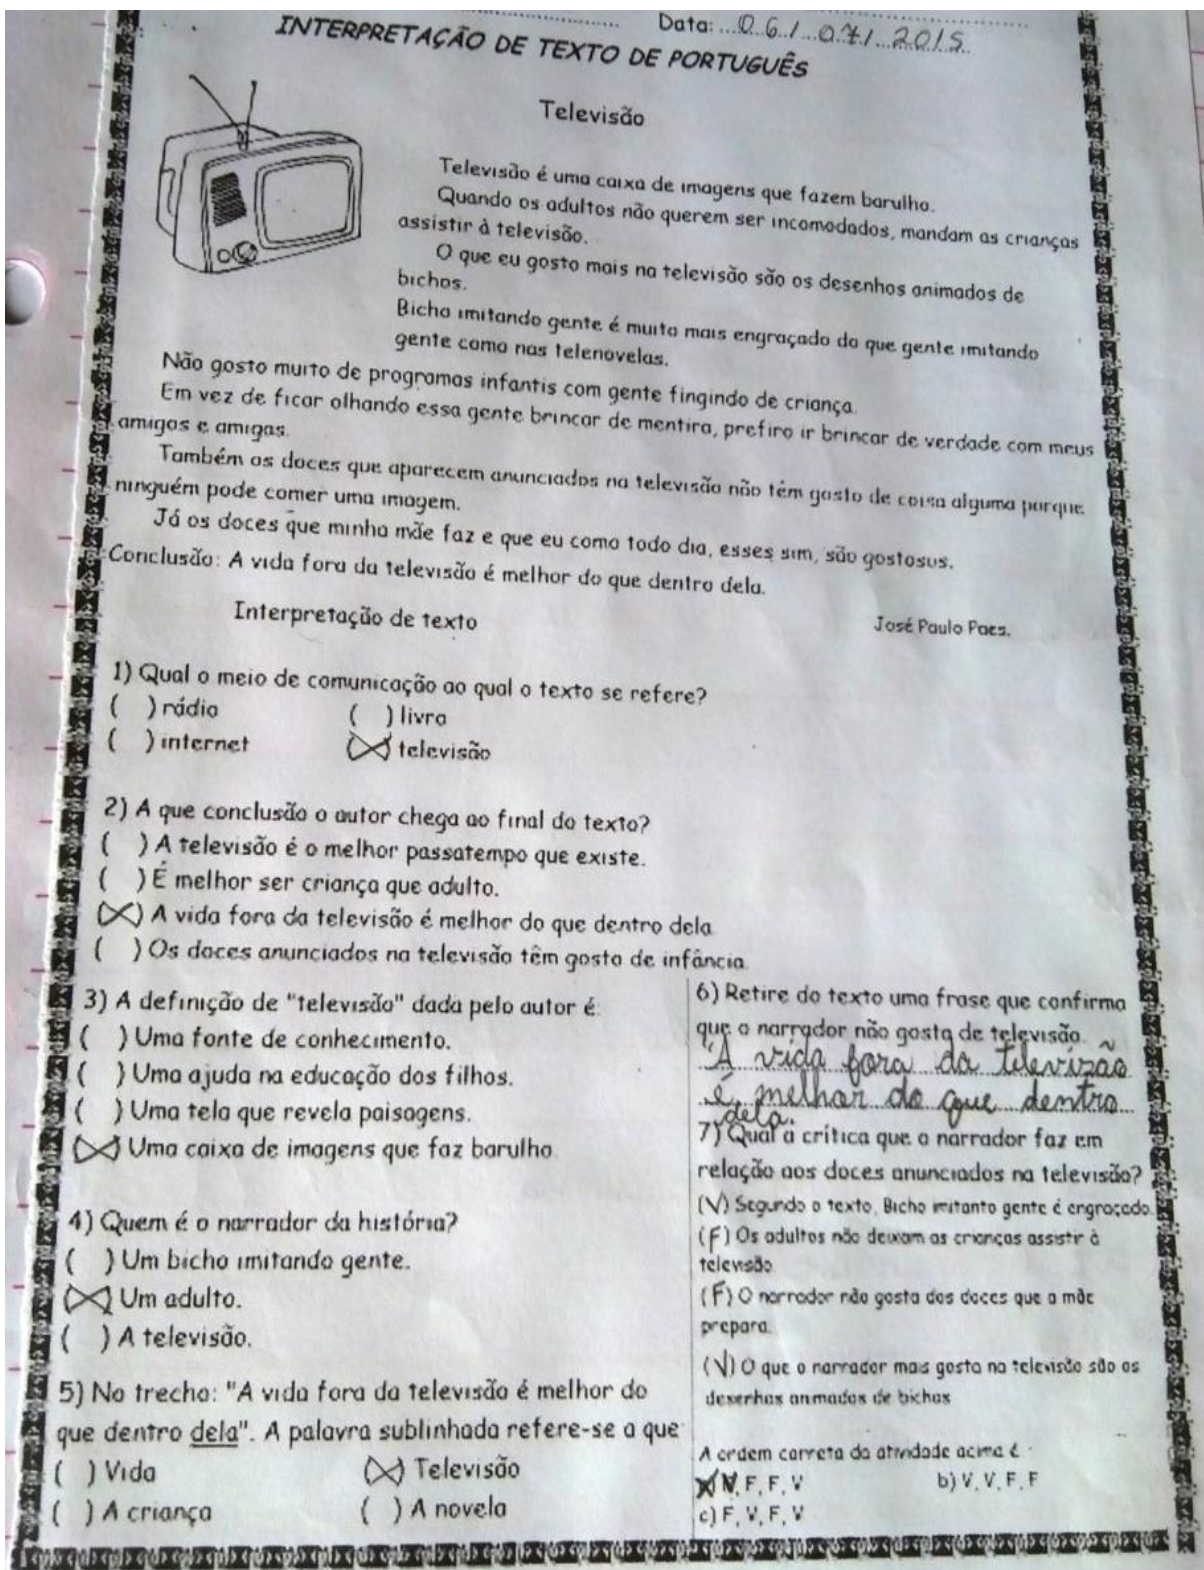 Data: 06/07/2015
INTERPRETAÇÃO DE TEXTO DE PORTUGUÊS
Televisão
Televisão é uma caixa de imagens que fazem barulho.
Quando os adultos não querem ser incomodados, mandam as crianças
assistir à televisão.
O que eu gosto mais na televisão são os desenhos animados de
bichos.
Bicho imitando gente é muito mais engraçado do que gente imitando
gente como nas telenovelas.
Não gosto muito de programas infantis com gente fingindo de criança.
Em vez de ficar olhando essa gente brincar de mentira, prefiro ir brincar de verdade com meus
amigos e amigas.
Também os doces que aparecem anunciados na televisão não têm gosto de coisa alguma porque
ninguém pode comer uma imagem.
Já os doces que minha mãe faz e que eu como todo dia, esses sim, são gostosos.
Conclusão: A vida fora da televisão é melhor do que dentro dela.
José Paulo Paes.
Interpretação de texto
1) Qual o meio de comunicação ao qual o texto se refere?
( ) rádio ( ) livro
( ) internet (X) televisão
2) A que conclusão o autor chega ao final do texto?
( ) A televisão é o melhor passatempo que existe.
( ) É melhor ser criança que adulto.
(X) A vida fora da televisão é melhor do que dentro dela
( ) Os doces anunciados na televisão têm gosto de infância.
3) A definição de "televisão" dada pelo autor é:
( ) Uma fonte de conhecimento.
( ) Uma ajuda na educação dos filhos.
( ) Uma tela que revela paisagens.
(X) Uma caixa de imagens que faz barulho.
4) Quem é o narrador da história?
( ) Um bicho imitando gente.
(X) Um adulto.
( ) A televisão.
5) No trecho: "A vida fora da televisão é melhor do
que dentro dela". A palavra sublinhada refere-se a que
( ) Vida (X) Televisão
( ) A criança ( ) A novela
6) Retire do texto uma frase que confirma
que o narrador não gosta de televisão.
A vida fora da televizão
é melhor do que dentro
dela.
7) Qual a crítica que o narrador faz em
relação aos doces anunciados na televisão?
(V) Segundo o texto, Bicho imitanto gente é engraçado.
(F) Os adultos não deixam as crianças assistir à
televisão
(F) O narrador não gosta dos doces que a mãe
prepara.
(V) O que o narrador mais gosta na televisão são os
desenhos animados de bichos
A ordem correta da atividade acima é
X V, F, F, V b) V, V, F, F
c) F, V, F, V